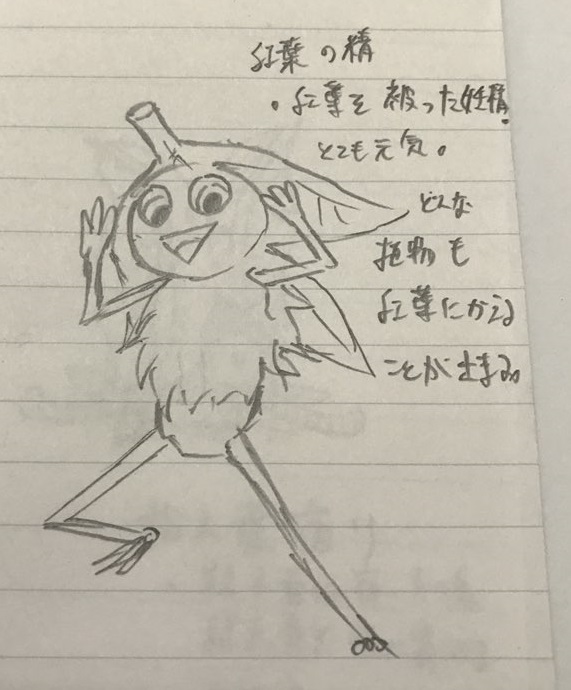 紅葉の精
・紅葉を被った妖精。
とても元気。
どんな
植物も
紅葉にかえる
ことが出来る。